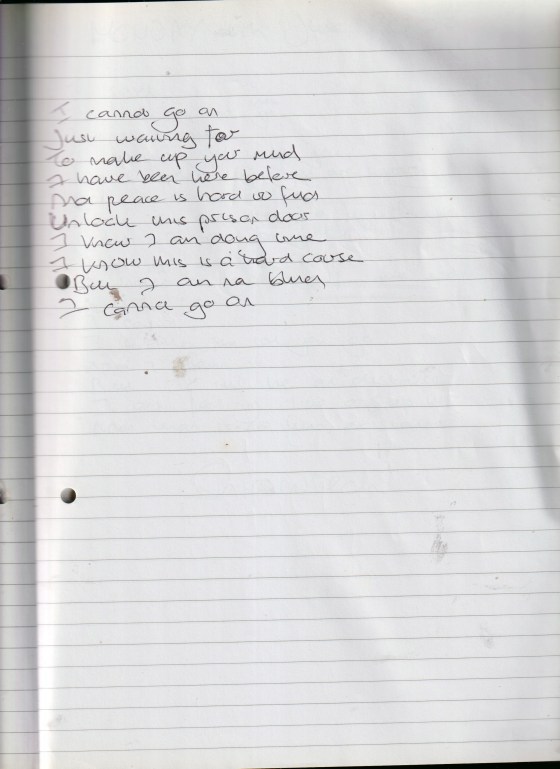 I cannot go on
Just waiting for
To make up your mind
I have been here before
And peace is hard to find
Unlock this prison door
I know I am doing time
I know this is a hard course
But I am na blind
I cannot go on